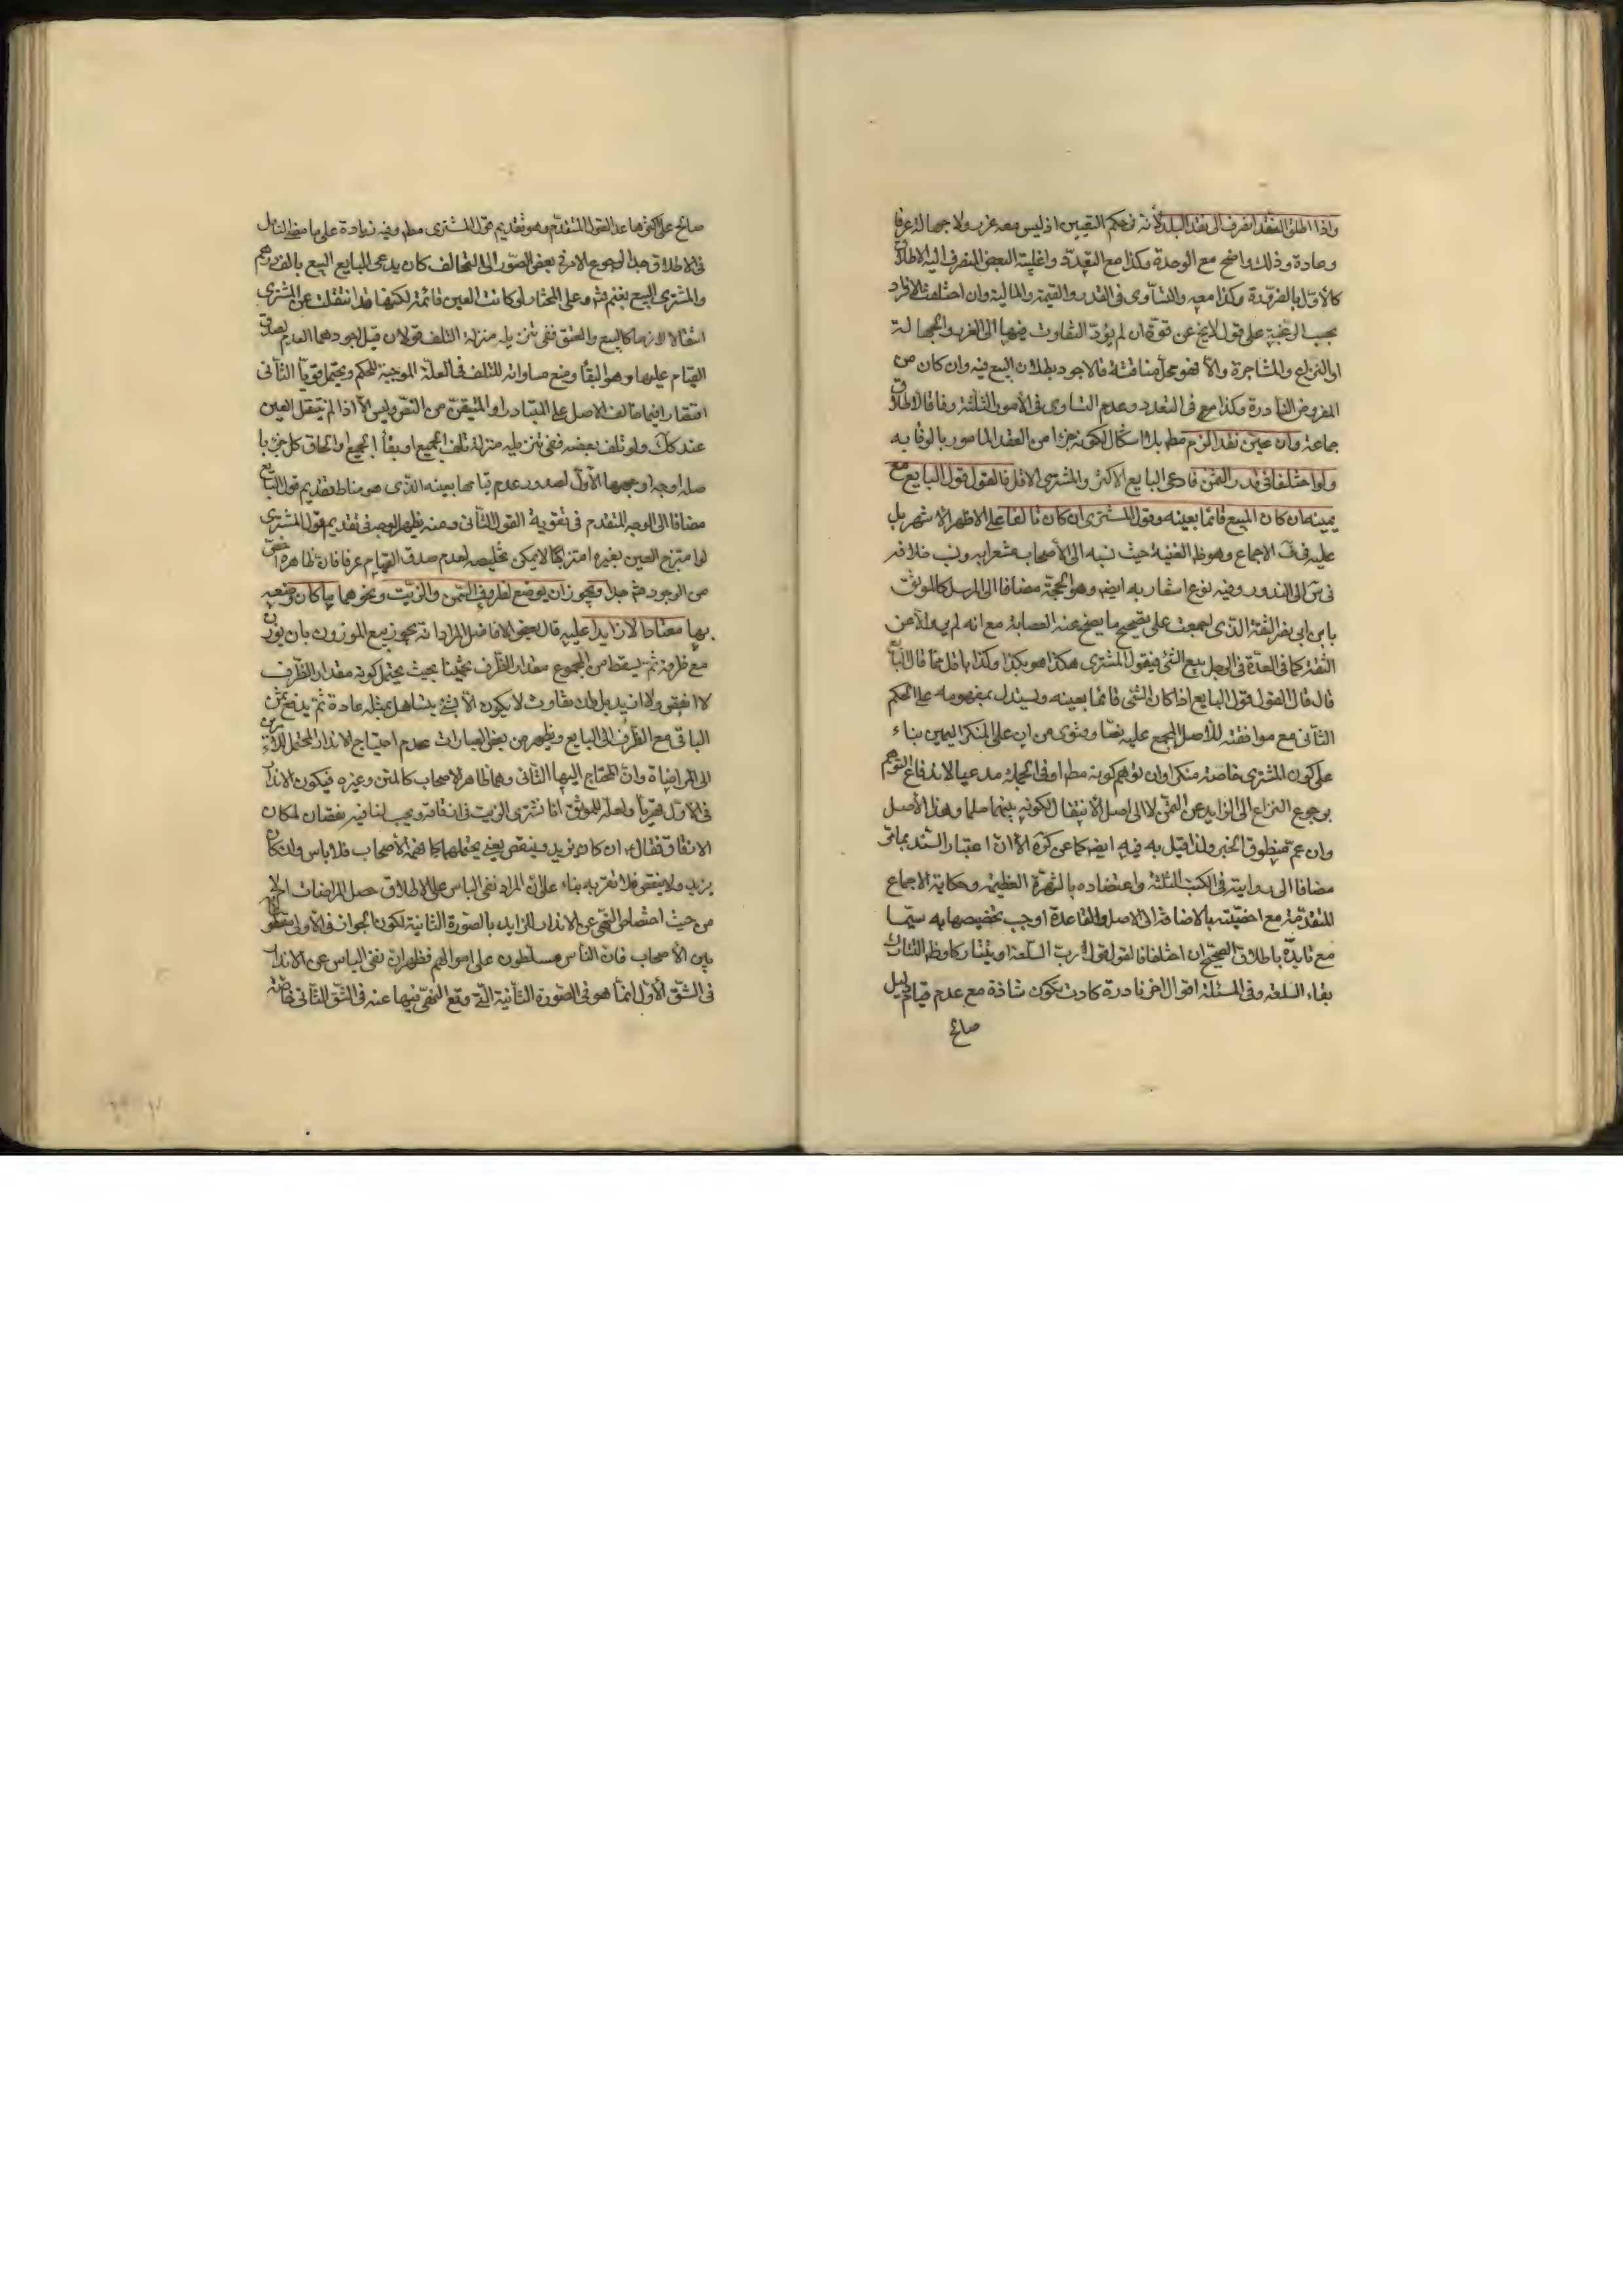 واذا اطلق النقد انصرف الى نقد البلد لأنه في حكم التعيين اذ ليس معه غرر ولا جهالة عرفا
وعادة وذلك واضح مع الوحدة وكذا مع التعدد واغلبية البعض المنصرف اليه الاطلاق
كالأول بالضرورة وكذا معه والتساوى في القدر والقيمة والمالية وان اختلفت الافراد
بحسب الرغبة على قول لا يخ عن قوة ان لم يؤد التفاوت فيها الى الغرر والجهالة
او النزاع والمشاجرة والا فهو محل مناقشة فالاجود بطلان البيع فيه وان كان من
الفروض النادرة وكذا مع في التعدد وعدم التساوى في الأمور الثلثة وفاقا لاطلاق
جماعة وان عين نقد الزم مطم بلا اشكال لكونه جزءا من العقد المأمور بالوفا به
ولو اختلفا في قدر الثمن فادعى البايع الاكثر والمشترى الاقل فالقول قول البايع مع
يمينه ان كان المبيع قائما بعينه وقول المشترى ان كان تالفا على الاظهر الاشهر بل
عليه في ف الاجماع وهو ظ الغنية حيث نسبه الى الأصحاب مشعرا به ونسب خلافه
في س الى الندور وفيه نوع اشعار به ايضا وهو الحجة مضافا الى المرسل كالموثق
بابن ابى نصر الثقة الذى اجمعت على تصحيح ما يصح عنه العصابة مع انه لم يرو الا عن
الثقة كما في العدة في الرجل يبيع الشئ فيقول المشترى هكذا هو بكذا وكذا باقل مما قال البايع
قال قال القول قول البايع اذا كان الشئ قائما بعينه ويستدل بمفهومه على الحكم
الثانى مع موافقته للأصل المجمع عليه نصا وفتوى من ان على المنكر اليمين بناء
على كون المشترى خاصة منكرا وان توهم كونه مطم او في الجملة مدعيا لاندفاع التوهم
برجوع النزاع الى الزايد عن الثمن لا الى اصل الانتقال لكونه بينهما صلحا وهذا الأصل
وان عم منطوق الخبر ولذا قيل به فيه ايضا كما عن كره الا ان اعتبار السند بما مر
مضافا الى روايته في الكتب الثلثة واعتضاده بالشهرة العظيمة وحكاية الاجماع
المتقدمة مع اخصيته بالاضافة الى الاصل والقاعدة اوجب تخصيصها به سيما
مع تايده باطلاق الصحيح ان اختلفا فالقول قول رب السلعة او يتتاركا وظ التتارك
بقاء السلعة وفى المسئلة اقوال اخر نادرة كادت تكون شاذة مع عدم قيام دليل
صالح
صالح على اكثرها عدا القول المتقدم وهو تقديم قول المشترى مطم وفيه زيادة على ما مضى التامل
في الاطلاق جدا لرجوع الامر في بعض الصور الى التحالف كان يدعى البايع البيع بالف درهم
والمشترى البيع بغنم ثم على المختار لو كانت العين قائمة لكنها قد انتقلت عن المشترى
انتقالا لازما كالبيع والعتق ففى تنزيله منزلة التلف قولان قيل اجودهما العدم لصدق
القيام عليها وهو البقأ ومنع مساواته للتلف في العلة الموجبة للحكم ويحتمل قويا الثانى
اقتصارا فيما خالف الاصل على المتبادر او المتيقن من النص وليس الا اذا لم ينتقل العين
عند كك ولو تلف بعضه ففى تنزيله منزلة تلف الجميع او بقأ الجميع او الحاق كل جزء با
صله اوجه اوجهها الأول لصدور عدم قيامها بعينه الذى هو مناط تقديم قول البايع
مضافا الى الوجه المتقدم في تقوية القول الثانى ومنه يظهر الوجه في تقديم قول المشترى
لو امتزج العين بغيره امتزاجا لا يمكن تخليصه لعدم صدق القيام عرفا فان ظاهره اخص
من الوجود ثم جدا ويجوز ان يوضع لظروف السمن والزيت ونحوهما ما كان وضعه
بها معتادا لا زايدا عليه قال بعض الافاضل المراد انه يجوز بيع الموزون بان يوزن
مع ظرفه ثم يسقط من المجموع مقدار الظرف تخمينا بحيث يحتمل كونه مقدار الظرف
لا انقص ولا ازيد بل وان تفاوت لا يكون الا بشئ يتساهل بمثله عادة ثم يدفع ثمن
الباقى مع الظرف الى البايع ويظهر من بعض العبارات عدم احتياج الاندار المحتمل للامرين
الى المراضاة وان المحتاج اليها الثانى وهما ظاهر الاصحاب كالمتن وغيره فيكون الاندار
في الأول قهريا ولعله للموثق انا نشترى الزيت في ازقاقه ويحسب لنا فيه نقصان لمكان
الازقاق فقال ان كان يزيد وينقص يعنى يحتملهما كما فهمه الأصحاب فلا باس وان كان
يزيد ولا ينقص فلا تقربه بناء على ان المراد نفى الباس على الاطلاق حصل المراضات ام لا
من حيث اختصاص النهى عن الاندار الزايد بالصورة الثانية لكون الجواز في الأولى مقطوع
بين الأصحاب فان الناس مسلطون على اموالهم فظهر ان نفى الباس عن الاندار
في الشق الأول انما هو في الصورة الثانية التى وقع النهى فيها عنه في الشق الثانى خاصة